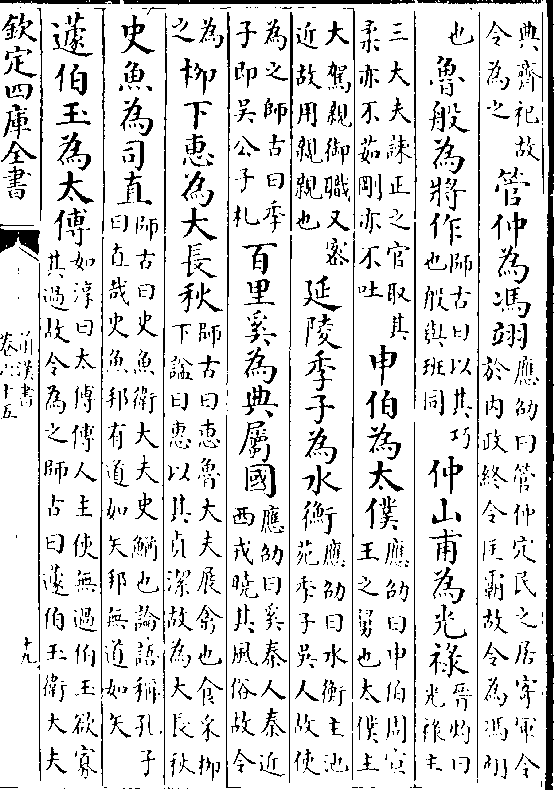 典齊祀故令為之 管仲為馮翊 應劭曰管仲定民之居寄軍令於内政終令匡霸故令為馮翊
也 魯般為將作 師古曰以其巧也般與班同 仲山甫為光祿 晉灼曰光祿主
三大夫諫正之官取其柔亦不茹剛亦不吐 申伯為太僕 應劭曰申伯周宣王之舅也太僕主
大駕親御職又密近故用親親也 延陵季子為水衡 應劭曰水衡主池苑季子吳人故使
為之師古曰季子即吳公子札 百里奚為典屬國 應劭曰奚秦人秦近西戎曉其風俗故令
為之 柳下惠為大長秋 師古曰惠魯大夫展禽也食采柳下諡曰惠以其貞潔故為大長秋
史魚為司直 師古曰史魚衛大夫史鰌也論語稱孔子曰直哉史魚邦有道如矢邦無道如矢
蘧伯玉為太傅 如淳曰太傅傅人主使無過伯玉欲寡其過故令為之師古曰蘧伯玉衛大夫
欽定四庫全書
前漢書
卷六十五
十九